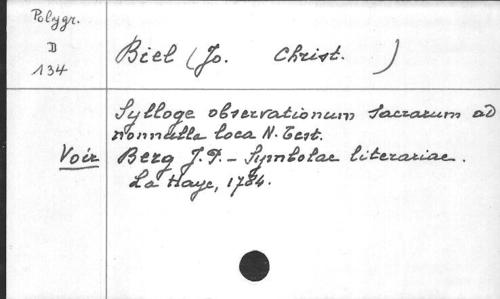 Polygr.
D
134
Biel (Jo. Christ. )
Sylloge observationum sacrarum ad
nonnulla loca N. Test.
Voir Berg J. P. - Symbolae literariae.
La Haye, 1784.